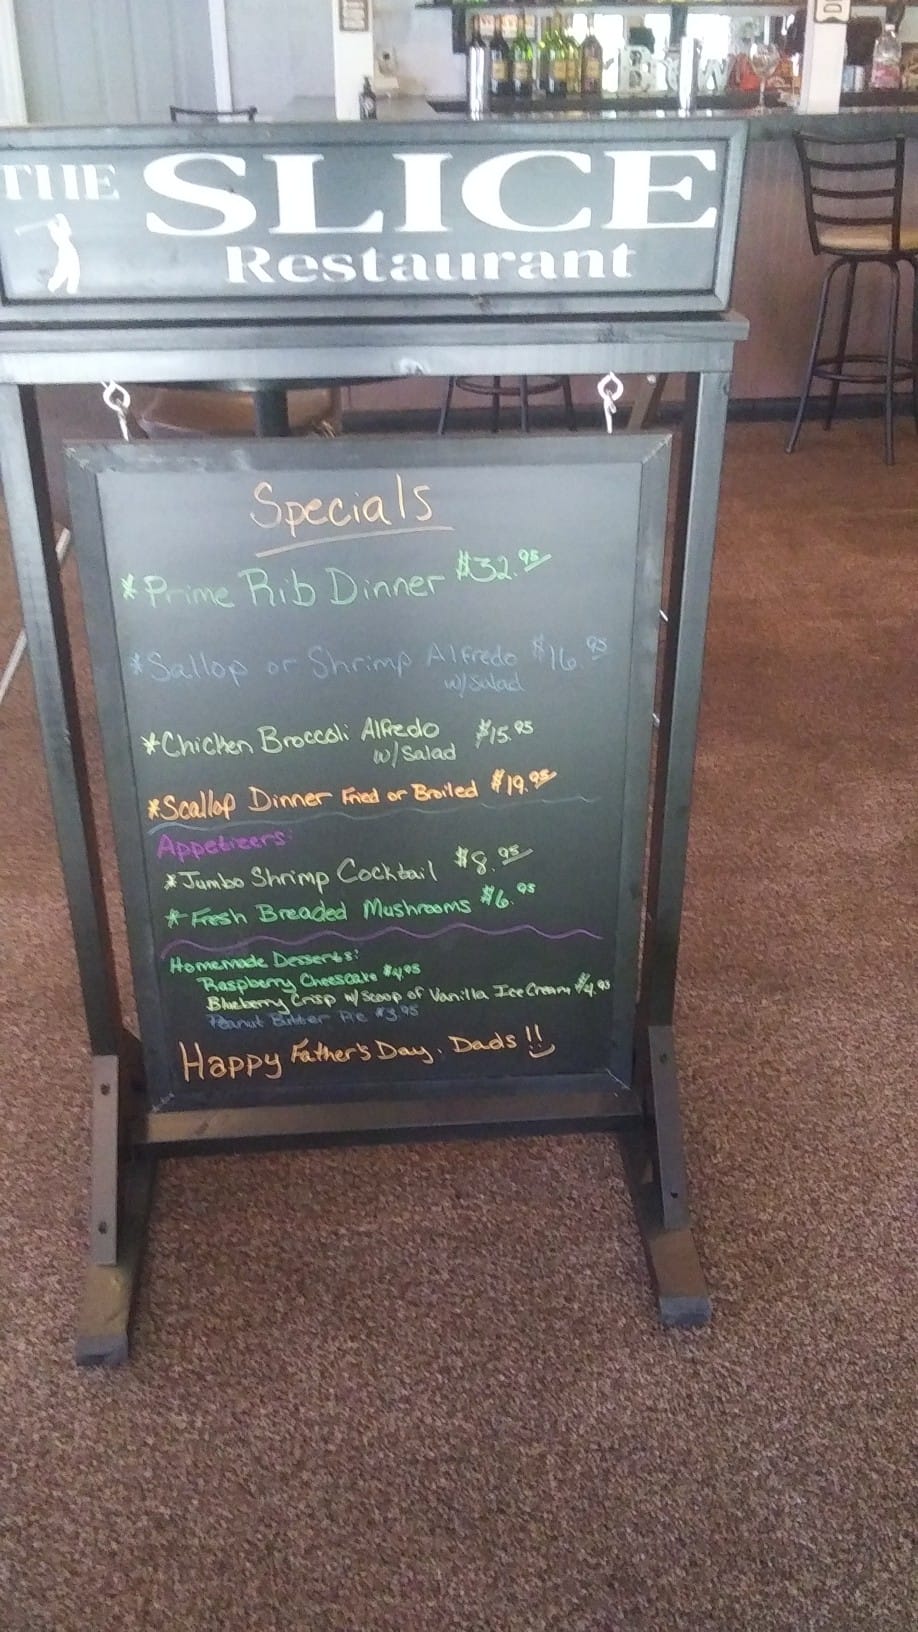 THE SLICE
Restaurant
Specials
*Prime Rib Dinner $32.95
*Sallop or Shrimp Alfredo $16.95
w/salad
*Chicken Broccoli Alfredo $15.95
w/Salad
*Scallop Dinner Fried or Broiled $19.95
Appetizers:
*Jumbo Shrimp Cocktail $8.95
*Fresh Breaded Mushrooms $6.95
Homemade Desserts:
Raspberry Cheescake $4.95
Blueberry Crisp w/ Scoop of Vanilla Ice Cream $4.95
Peanut Butter Pie $3.95
Happy Father's Day, Dads!!